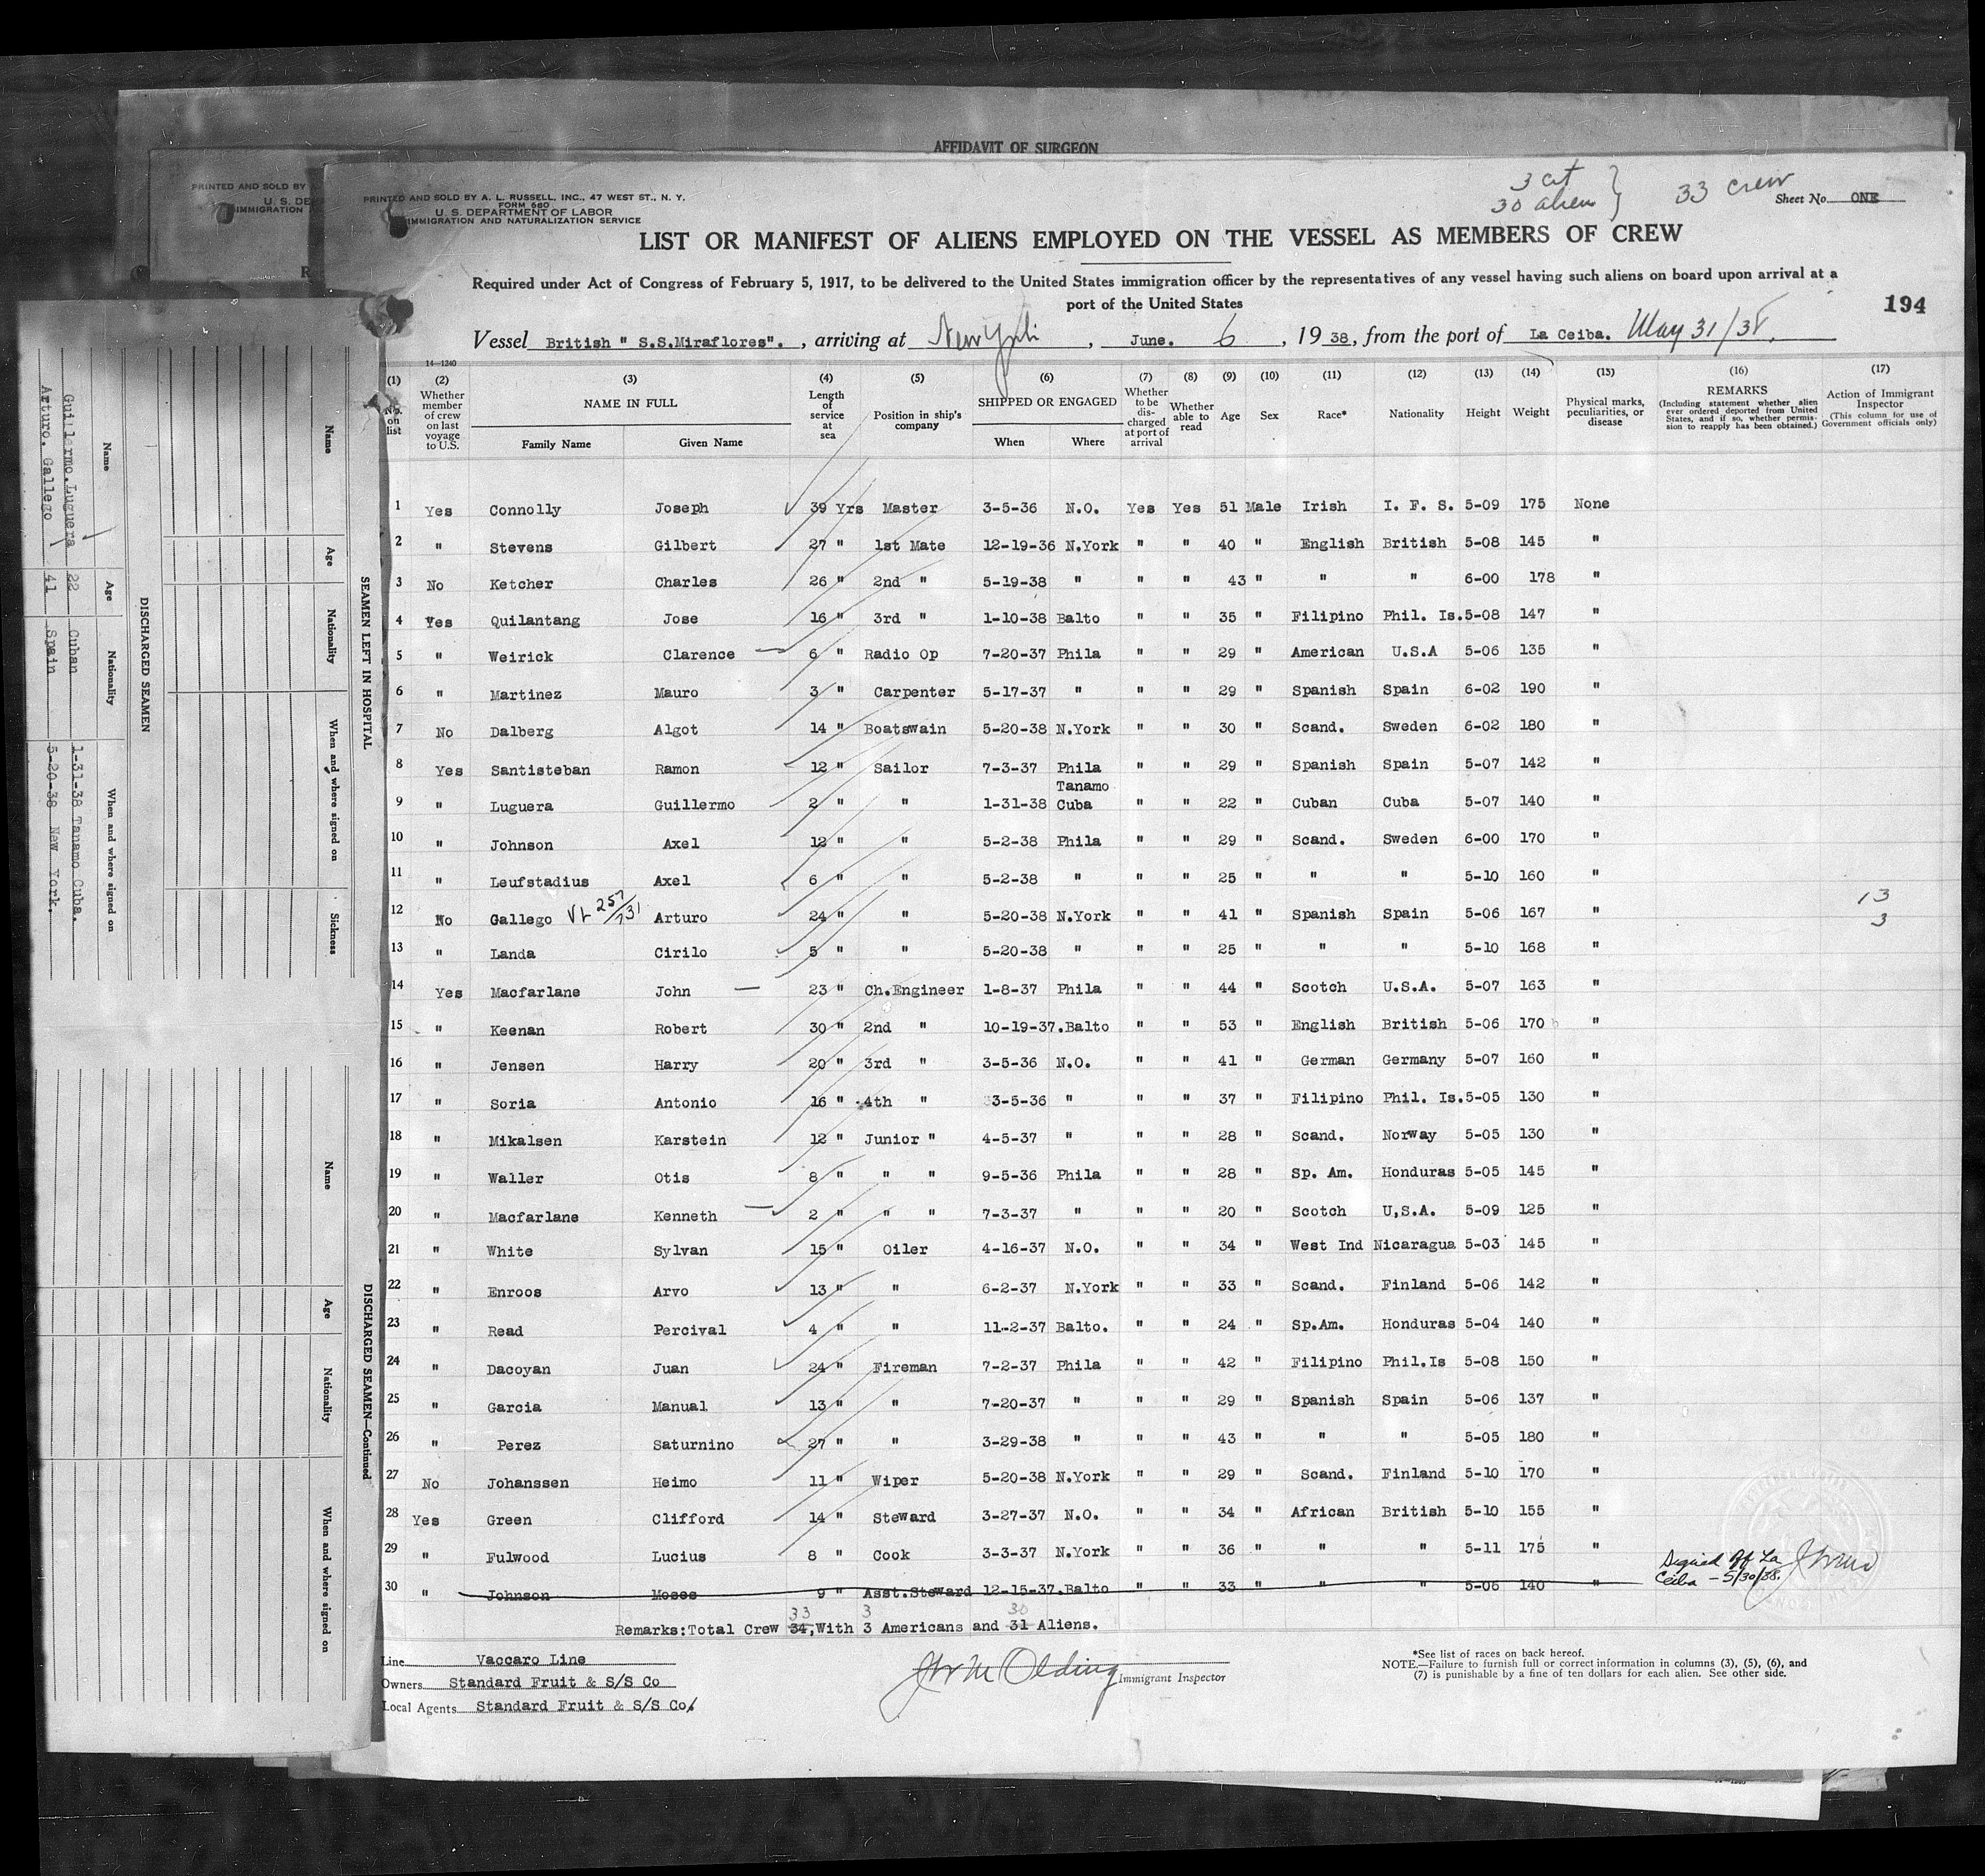 AFFIDAVIT OF SURGEON
PRINTED AND SOLD BY
U. S. DE
IMMIGRATION
PRINTED AND SOLD BY A. L. RUSSELL, INC., 47 WEST ST., N. Y.
FORM 680
U. S. DEPARTMENT OF LABOR
IMMIGRATION AND NATURALIZATION SERVICE
3 cit
30 alien } 33 crew
Sheet No. ONE
LIST OR MANIFEST OF ALIENS EMPLOYED ON THE VESSEL AS MEMBERS OF CREW
Required under Act of Congress of February 5, 1917, to be delivered to the United States immigration officer by the representatives of any vessel having such aliens on board upon arrival at a
port of the United States
194
Vessel British " S.S.Miraflores". , arriving at New York , June. 6 , 19 38, from the port of La Ceiba. May 31/38.
14—1240
(1) (2) (3) (4) (5) (6) (7) (8) (9) (10) (11) (12) (13) (14) (15) (16) (17)
No. on list
Whether member of crew on last voyage to U.S.
NAME IN FULL
Family Name Given Name
Length of service at sea
Position in ship's company
SHIPPED OR ENGAGED
When Where
Whether to be discharged at port of arrival
Whether able to read
Age Sex Race* Nationality Height Weight
Physical marks, peculiarities, or disease
REMARKS
(Including statement whether alien ever ordered deported from United States, and if so, whether permission to reapply has been obtained.)
Action of Immigrant Inspector
(This column for use of Government officials only)
1 Yes Connolly Joseph 39 Yrs Master 3-5-36 N.O. Yes Yes 51 Male Irish I. F. S. 5-09 175 None
2 " Stevens Gilbert 27 " 1st Mate 12-19-36 N.York " " 40 " English British 5-08 145 "
3 No Ketcher Charles 26 " 2nd " 5-19-38 " " " 43 " " " 6-00 178 "
4 Yes Quilantang Jose 16 " 3rd " 1-10-38 Balto " " 35 " Filipino Phil. Is. 5-08 147 "
5 " Weirick Clarence 6 " Radio Op 7-20-37 Phila " " 29 " American U.S.A 5-06 135 "
6 " Martinez Mauro 3 " Carpenter 5-17-37 " " " 29 " Spanish Spain 6-02 190 "
7 No Dalberg Algot 14 " Boatswain 5-20-38 N.York " " 30 " Scand. Sweden 6-02 180 "
8 Yes Santisteban Ramon 12 " Sailor 7-3-37 Phila " " 29 " Spanish Spain 5-07 142 "
9 " Luguera Guillermo 2 " " 1-31-38 Tanamo Cuba " " 22 " Cuban Cuba 5-07 140 "
10 " Johnson Axel 12 " " 5-2-38 Phila " " 29 " Scand. Sweden 6-00 170 "
11 " Leufstadius Axel 6 " " 5-2-38 " " " 25 " " " 5-10 160 "
12 No Gallego VL 257/731 Arturo 24 " " 5-20-38 N.York " " 41 " Spanish Spain 5-06 167 " 13
3
13 " Landa Cirilo 5 " " 5-20-38 " " " 25 " " " 5-10 168 "
14 Yes Macfarlane John 23 " Ch.Engineer 1-8-37 Phila " " 44 " Scotch U.S.A. 5-07 163 "
15 " Keenan Robert 30 " 2nd " 10-19-37. Balto " " 53 " English British 5-06 170 "
16 " Jensen Harry 20 " 3rd " 3-5-36 N.O. " " 41 " German Germany 5-07 160 "
17 " Soria Antonio 16 " 4th " 3-5-36 " " " 37 " Filipino Phil. Is. 5-05 130 "
18 " Mikalsen Karstein 12 " Junior " 4-5-37 " " " 28 " Scand. Norway 5-05 130 "
19 " Waller Otis 8 " " " 9-5-36 Phila " " 28 " Sp. Am. Honduras 5-05 145 "
20 " Macfarlane Kenneth 2 " " " 7-3-37 " " " 20 " Scotch U.S.A. 5-09 125 "
21 " White Sylvan 15 " Oiler 4-16-37 N.O. " " 34 " West Ind Nicaragua 5-03 145 "
22 " Enroos Arvo 13 " " 6-2-37 N.York " " 33 " Scand. Finland 5-06 142 "
23 " Read Percival 4 " " 11-2-37 Balto. " " 24 " Sp.Am. Honduras 5-04 140 "
24 " Dacoyan Juan 24 " Fireman 7-2-37 Phila " " 42 " Filipino Phil.Is 5-08 150 "
25 " Garcia Manual 13 " " 7-20-37 " " " 29 " Spanish Spain 5-06 137 "
26 " Perez Saturnino 27 " " 3-29-38 " " " 43 " " " 5-05 180 "
27 No Johanssen Heimo 11 " Wiper 5-20-38 N.York " " 29 " Scand. Finland 5-10 170 "
28 Yes Green Clifford 14 " Steward 3-27-37 N.O. " " 34 " African British 5-10 155 "
29 " Fulwood Lucius 8 " Cook 3-3-37 N.York " " 36 " " " 5-11 175 "
30 " Johnson Moses 9 " Asst.Steward 12-15-37. Balto " " 33 " " " 5-06 140 " Signed off La Ceiba - 5/30/38.
33 3 30
Remarks:Total Crew 34,With 3 Americans and 31 Aliens.
Line Vaccaro Line
Owners Standard Fruit & S/S Co
Local Agents Standard Fruit & S/S Co.
Immigrant Inspector
*See list of races on back hereof.
NOTE.—Failure to furnish full or correct information in columns (3), (5), (6), and
(7) is punishable by a fine of ten dollars for each alien. See other side.
SEAMEN LEFT IN HOSPITAL
Name Age Nationality When and where signed on Sickness
DISCHARGED SEAMEN
Name Age Nationality When and where signed on
Guillermo.Luguera 22 Cuban 1-31-38 Tanamo Cuba.
Arturo. Gallego 41 Spain 5-20-38 New York.
DISCHARGED SEAMEN—Continued
Name Age Nationality When and where signed on